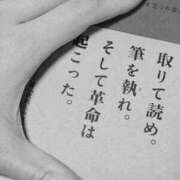 取りて読め。
筆を執れ。
そして革命は
起こった。